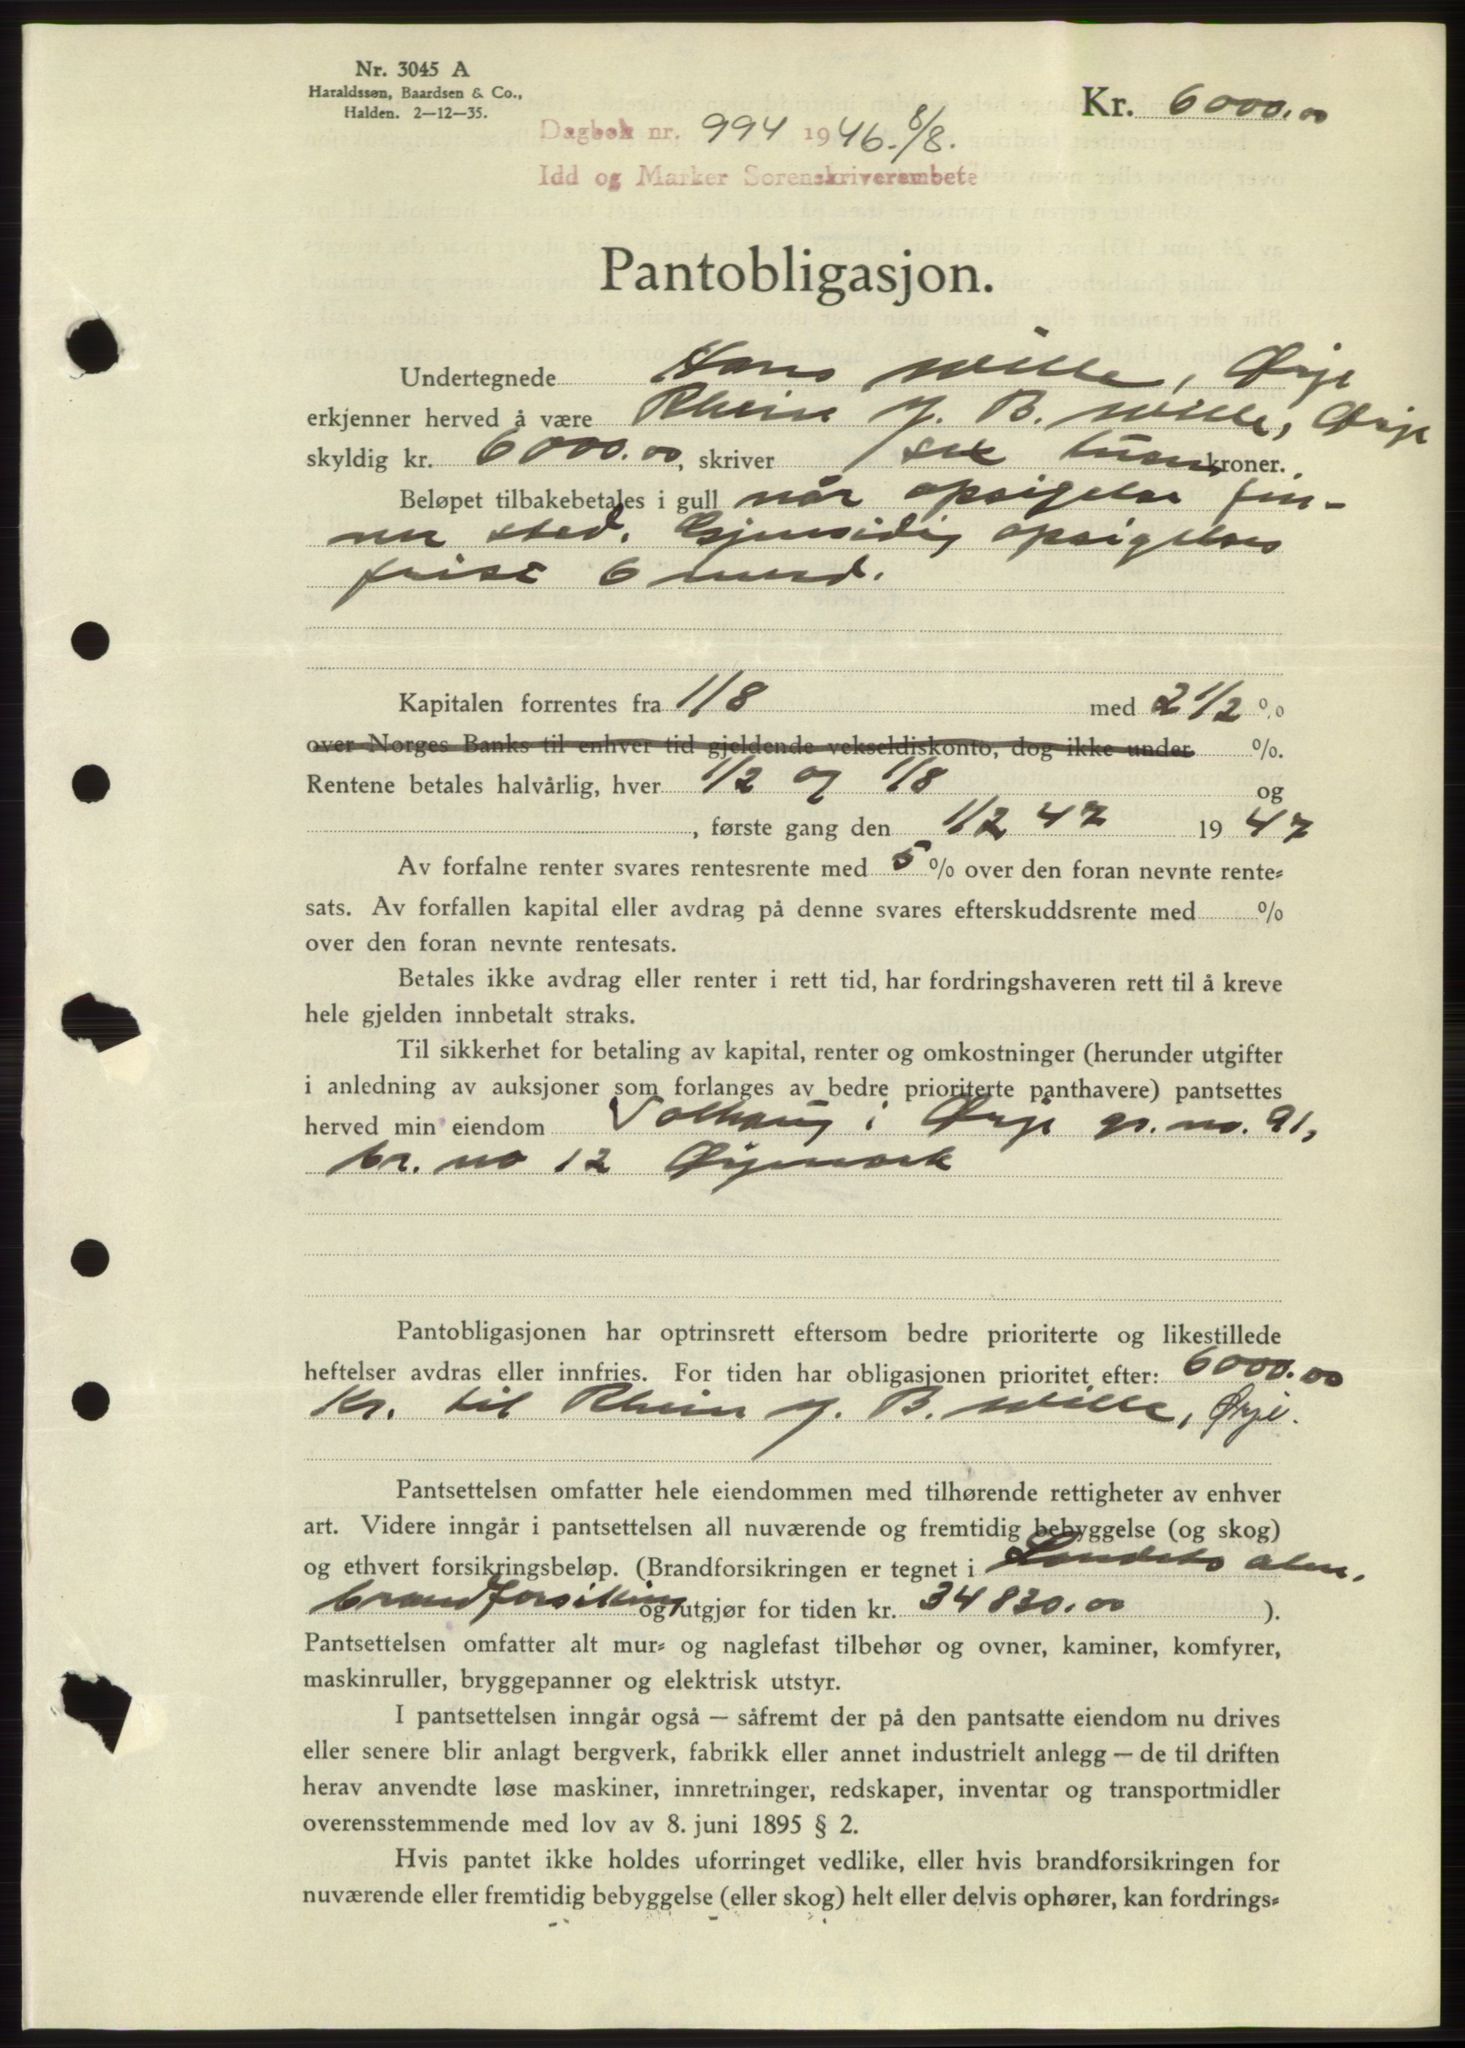 Nr. 3045 A
Haraldssøn, Baardsen & Co.,
Halden. 2—12—35.
Kr. 6000.00
Dagbok nr. 994 1946. 8/8.
Idd og Marker Sorenskriverembete
Pantobligasjon.
Undertegnede Hans Wille, Ørje
erkjenner herved å være Rhein J. B. Wille, Ørje
skyldig kr. 6000.00, skriver sex tusen kroner.
Beløpet tilbakebetales i gull når opsigelse fin-
ner sted. Gjensidig opsigelses
frist 6 mnd.
Kapitalen forrentes fra 1/8 med 2 1/2 %
over Norges Banks til enhver tid gjeldende vekseldiskonto, dog ikke under %.
Rentene betales halvårlig, hver 1/2 og 1/8 og
, første gang den 1/2 47 1947
Av forfalne renter svares rentesrente med 5 % over den foran nevnte rente-
sats. Av forfallen kapital eller avdrag på denne svares efterskuddsrente med %
over den foran nevnte rentesats.
Betales ikke avdrag eller renter i rett tid, har fordringshaveren rett til å kreve
hele gjelden innbetalt straks.
Til sikkerhet for betaling av kapital, renter og omkostninger (herunder utgifter
i anledning av auksjoner som forlanges av bedre prioriterte panthavere) pantsettes
herved min eiendom Solhaug i Ørje gr. no. 91,
br. no 12 Øyemark
Pantobligasjonen har optrinsrett eftersom bedre prioriterte og likestillede
heftelser avdras eller innfries. For tiden har obligasjonen prioritet efter: 6000.00
Kr. til Rhein J. B. Wille, Ørje.
Pantsettelsen omfatter hele eiendommen med tilhørende rettigheter av enhver
art. Videre inngår i pantsettelsen all nuværende og fremtidig bebyggelse (og skog)
og ethvert forsikringsbeløp. (Brandforsikringen er tegnet i Landets alm.
brandforsikring og utgjør for tiden kr. 34830.00 ).
Pantsettelsen omfatter alt mur- og naglefast tilbehør og ovner, kaminer, komfyrer,
maskinruller, bryggepanner og elektrisk utstyr.
I pantsettelsen inngår også — såfremt der på den pantsatte eiendom nu drives
eller senere blir anlagt bergverk, fabrikk eller annet industrielt anlegg — de til driften
herav anvendte løse maskiner, innretninger, redskaper, inventar og transportmidler
overensstemmende med lov av 8. juni 1895 § 2.
Hvis pantet ikke holdes uforringet vedlike, eller hvis brandforsikringen for
nuværende eller fremtidig bebyggelse (eller skog) helt eller delvis ophører, kan fordrings-